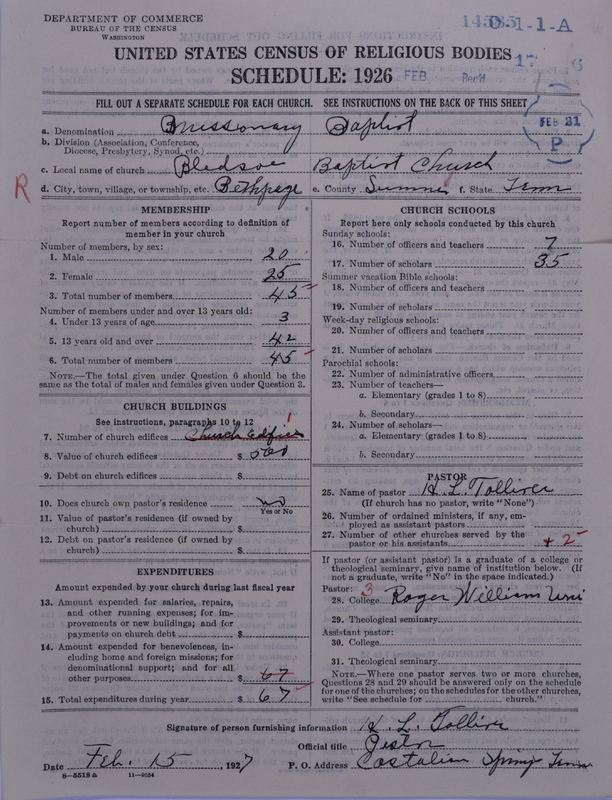 DEPARTMENT OF COMMERCE
BUREAU OF THE CENSUS
WASHINGTON
1-1-A
UNITED STATES CENSUS OF RELIGIOUS BODIES
SCHEDULE: 1926 FEB
FILL OUT A SEPARATE SCHEDULE FOR EACH CHURCH. SEE INSTRUCTIONS ON THE BACK OF THIS SHEET
FEB 21
P
a. Denomination Missionary Baptist
b. Division (Association, Conference,
Diocese, Presbytery, Synod, etc.)
c. Local name of church Bledsoe Baptist Church
R
d. City, town, village, or township, etc. Bethpage e. County Sumner f. State Tenn
MEMBERSHIP
Report number of members according to definition of
member in your church
Number of members, by sex:
1. Male 20
2. Female 25
3. Total number of members 45
Number of members under and over 13 years old:
4. Under 13 years of age 3
5. 13 years old and over 42
6. Total number of members 45
NOTE.—The total given under Question 6 should be the
same as the total of males and females given under Question 3.
CHURCH BUILDINGS
See instructions, paragraphs 10 to 12
7. Number of church edifices Church edifices 1
8. Value of church edifices $ 500
9. Debt on church edifices $
10. Does church own pastor's residence no
Yes or No
11. Value of pastor's residence (if owned by
church) $
12. Debt on pastor's residence (if owned by
church) $
EXPENDITURES
Amount expended by your church during last fiscal year
13. Amount expended for salaries, repairs,
and other running expenses; for im-
provements or new buildings; and for
payments on church debt $
14. Amount expended for benevolences, in-
cluding home and foreign missions; for
denominational support; and for all
other purposes $ 67
15. Total expenditures during year $ 67
CHURCH SCHOOLS
Report here only schools conducted by this church
Sunday schools:
16. Number of officers and teachers 7
17. Number of scholars 35
Summer vacation Bible schools:
18. Number of officers and teachers
19. Number of scholars
Week-day religious schools:
20. Number of officers and teachers
21. Number of scholars
Parochial schools:
22. Number of administrative officers
23. Number of teachers—
a. Elementary (grades 1 to 8)
b. Secondary
24. Number of scholars—
a. Elementary (grades 1 to 8)
b. Secondary
PASTOR
25. Name of pastor H. L. Tolliver
(If church has no pastor, write "None")
26. Number of ordained ministers, if any, em-
ployed as assistant pastors
27. Number of other churches served by the
pastor or his assistants + 2
If pastor (or assistant pastor) is a graduate of a college or
theological seminary, give name of institution below. (If
not a graduate, write "No" in the space indicated.)
Pastor: 3
28. College Roger William Uni
29. Theological seminary
Assistant pastor:
30. College
31. Theological seminary
NOTE.—Where one pastor serves two or more churches,
Questions 28 and 29 should be answered only on the schedule
for one of the churches; on the schedules for the other churches,
write "See schedule for church."
Signature of person furnishing information H. L. Tolliver
Official title Pastor
Date Feb. 15, 1927 P. O. Address Castalian Spring Tenn
8—5518 a 11—9054